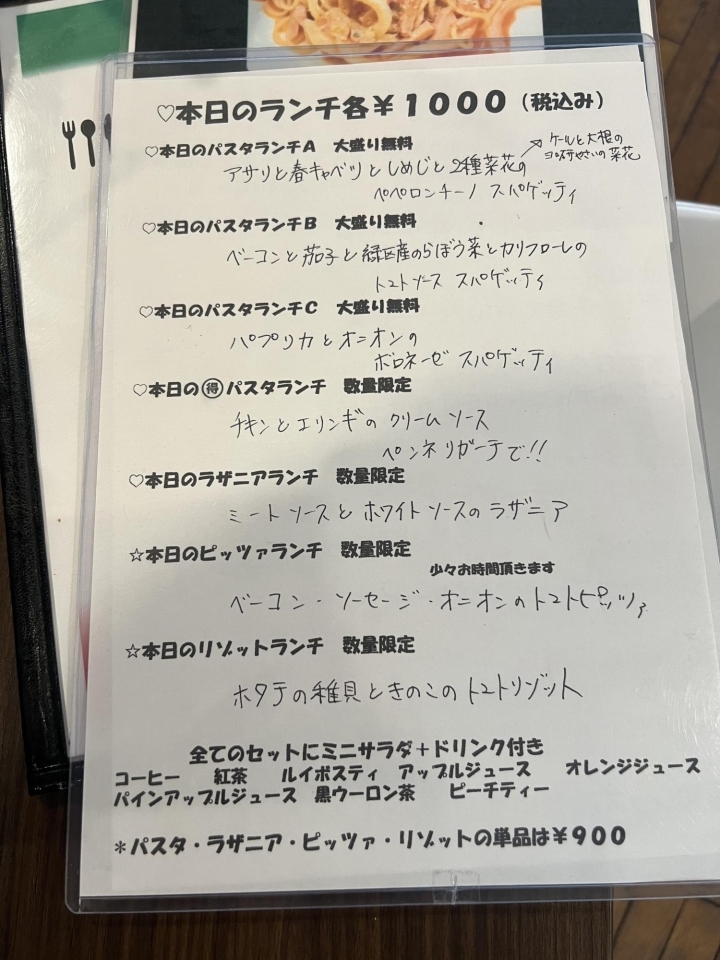 ♡本日のランチ各￥１０００（税込み）
♡本日のパスタランチＡ　大盛り無料
ケールと大根の
アサリと春キャベツとしめじと2種菜花の
菜花
ペペロンチーノ スパゲッティ
♡本日のパスタランチＢ　大盛り無料
ベーコンと茄子と緑区産のらぼう菜とカリフローレの
トマトソース スパゲッティ
♡本日のパスタランチＣ　大盛り無料
パプリカとオニオンの
ボロネーゼ スパゲッティ
♡本日の㊝パスタランチ　数量限定
チキンとエリンギの クリームソース
ペンネリガーテで!!
♡本日のラザニアランチ　数量限定
ミートソースとホワイトソースのラザニア
☆本日のピッツァランチ　数量限定
少々お時間頂きます
ベーコン・ソーセージ・オニオンのトマトピッツァ
☆本日のリゾットランチ　数量限定
ホタテの稚貝ときのこのトマトリゾット
全てのセットにミニサラダ＋ドリンク付き
コーヒー　紅茶　ルイボスティ　アップルジュース　オレンジジュース
パインアップルジュース　黒ウーロン茶　ピーチティー
＊パスタ・ラザニア・ピッツァ・リゾットの単品は￥９００